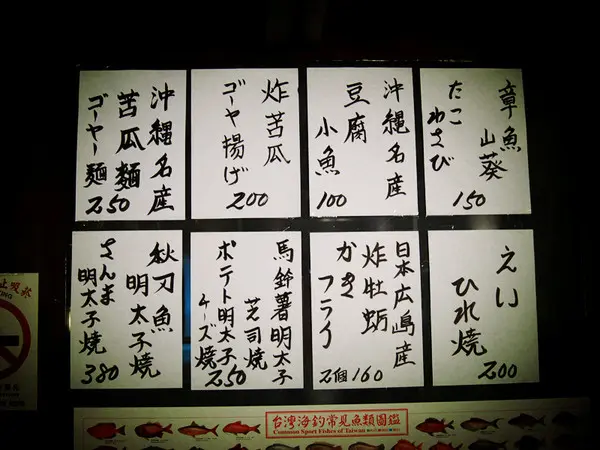 章魚
山葵
たこ
わさび
150
沖縄名産
豆腐
小魚
100
炸苦瓜
ゴーヤ揚げ
200
沖縄名産
苦瓜麵
ゴーヤー麺
250
えい
ひれ焼
200
日本広島産
炸牡蛎
かき
フライ
2個160
馬鈴薯明太子
芝司焼
ポテト明太子
チーズ焼
250
秋刀魚
明太子焼
さんま
明太子焼
380
台灣海釣常見魚類圖鑑
Common Sport Fishes of Taiwan